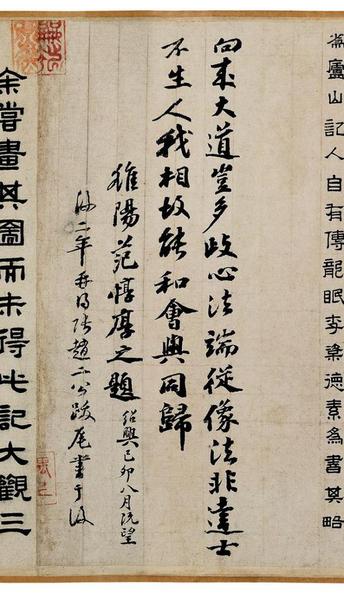 為廬山記人自有傳龍眠李楶德素為書其略
向來大道豈多歧心法端從像法非達士
不生人我相故能和會與同歸
雒陽范惇厚之題 紹興己卯八月既望
後二年再得張趙二公跋尾書于後
余嘗畫其圖而未得此記大觀三